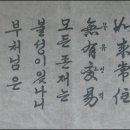 如來常住
無有變易
모든 존재는
불성이 있나니
부처님은